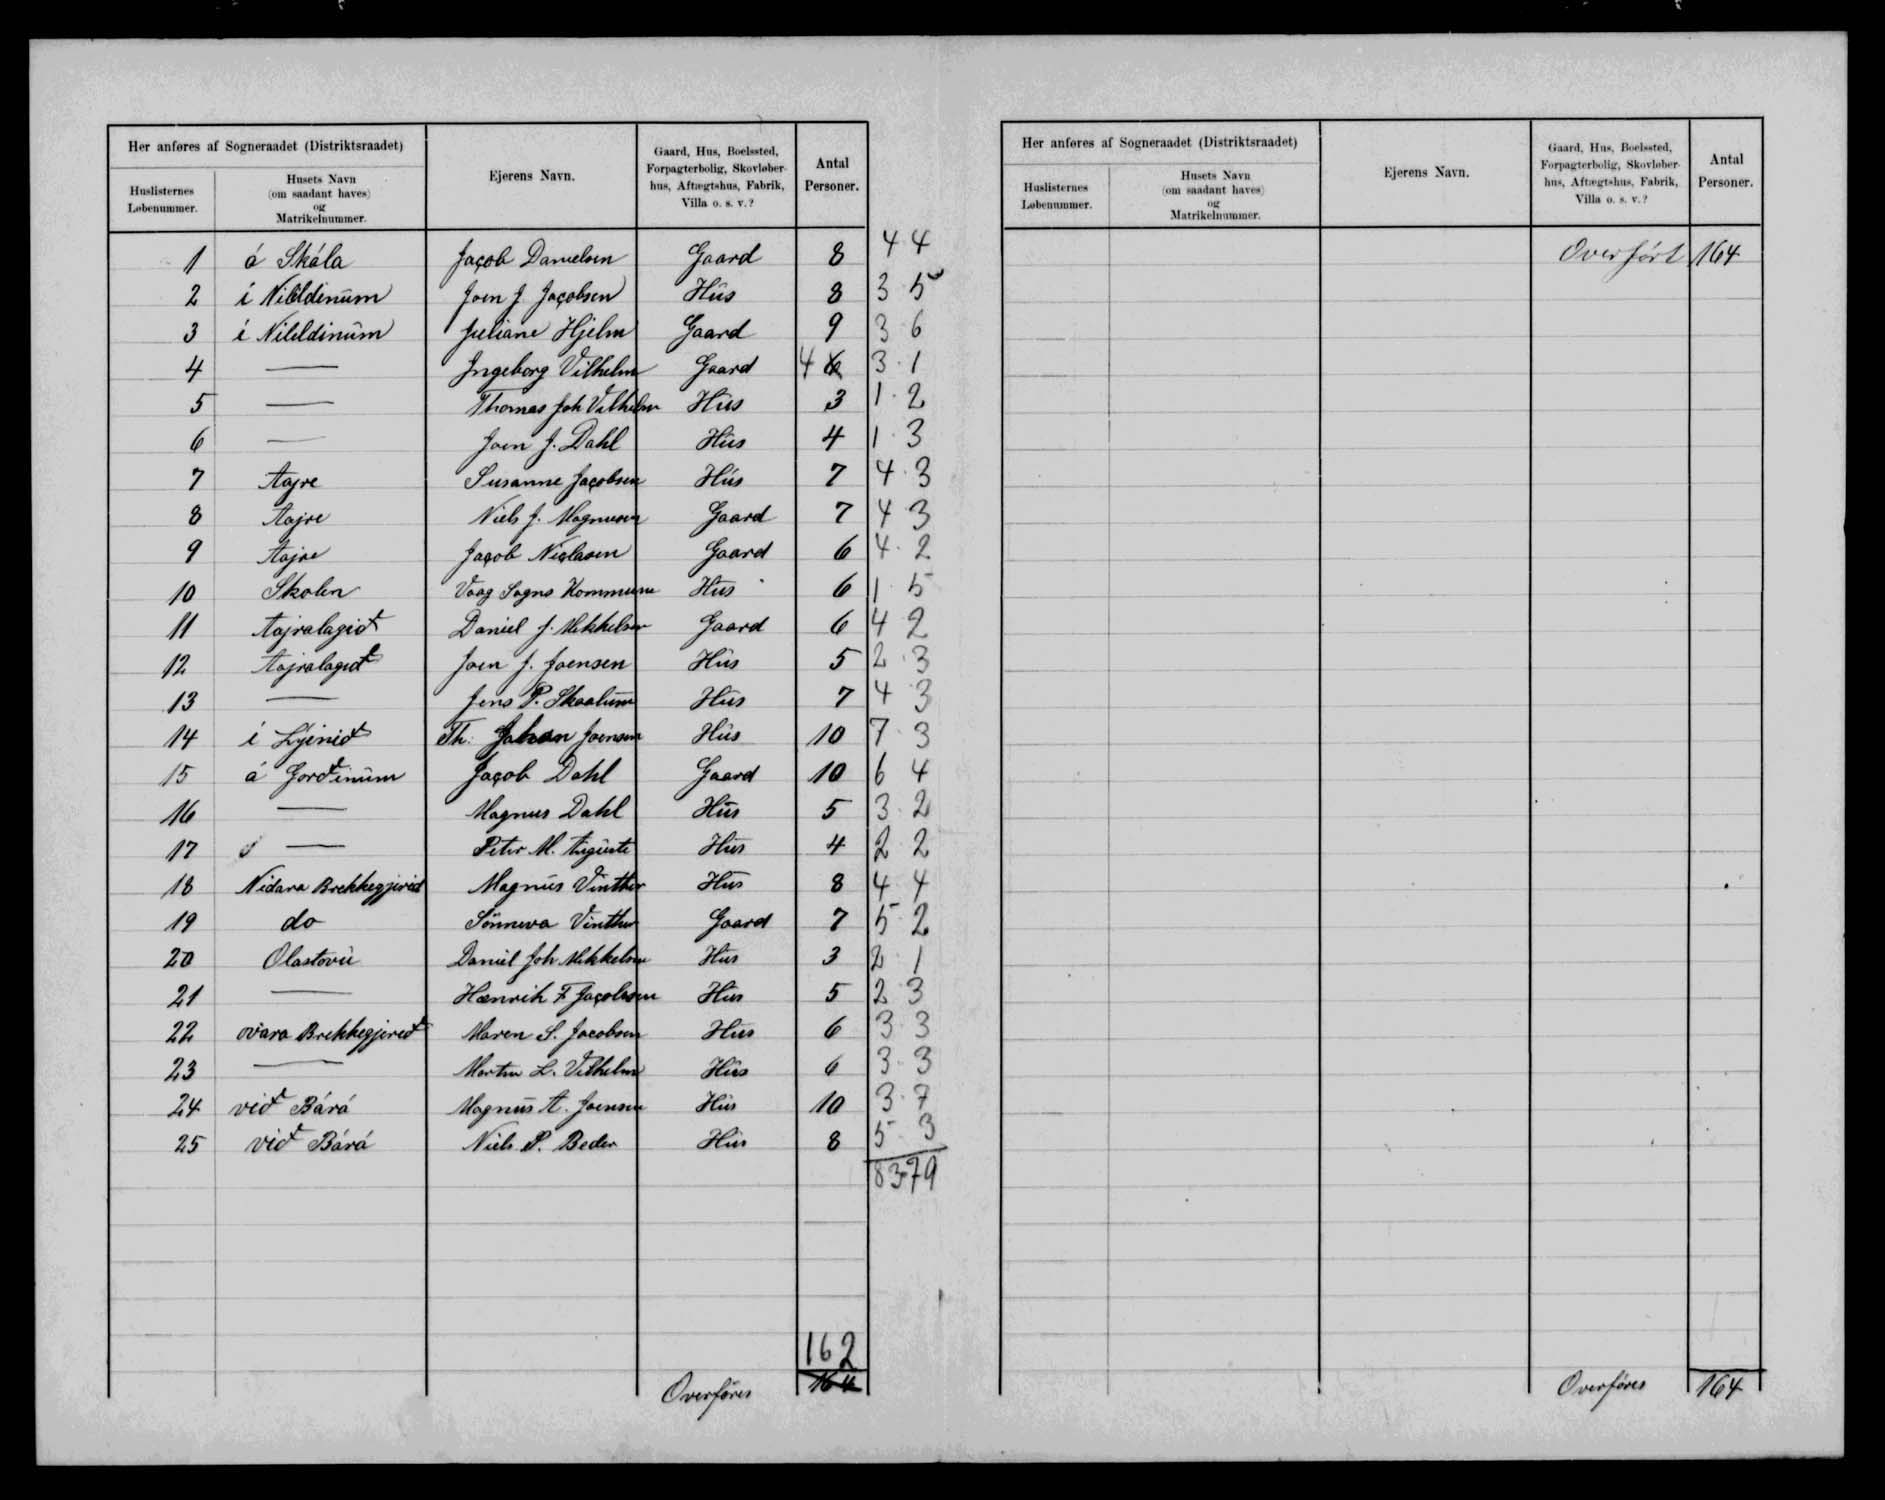 Her anføres af Sogneraadet (Distriktsraadet)
Huslisternes Løbenummer.
Husets Navn (om saadant haves) og Matrikelnummer.
Ejerens Navn.
Gaard, Hus, Boelssted, Forpagterbolig, Skovløberhus, Aftægtshus, Fabrik, Villa o. s. v.?
Antal Personer.
1 á Skála Jacob Danielsen Gaard 8 4 4
2 i Joen J Jacobsen Hús 8 3 5
3 i Juliane Hjelm Gaard 9 3 6
4 — Ingeborg Vilhelm Gaard 4 6 3 1
5 — Thomas Joh Vilhelm Hús 3 1 2
6 — Joen J. Dahl Hús 4 1 3
7 Aajre Susanne Jacobsen Hús 7 4 3
8 Aajre Niels J. Magnusen Gaard 7 4 3
9 Aajre Jacob Niclasen Gaard 6 4 2
10 Skolen Vaag Sogns Kommune Hus 6 1 5
11 Aajralagið Daniel J. Mikkelsen Gaard 6 4 2
12 Aajralagið Joen J. Joensen Hús 5 2 3
13 — Jens P. Skaalum Hus 7 4 3
14 i Th: Johan Joensen Hús 10 7 3
15 á Gorðinum Jacob Dahl Gaard 10 6 4
16 — Magnus Dahl Hús 5 3 2
17 — Peter M. Hus 4 2 2
18 Nidara Brekkegjerid Magnus Vinther Hus 8 4 4
19 do Sönneva Vinther Gaard 7 5 2
20 Olastovu Daniel Joh Mikkelsen Hus 3 2 1
21 — Hænrik F Jacobsen Hus 5 2 3
22 ovara Brekkegjereð Maren S. Jacobsen Hus 6 3 3
23 — Martin L. Vilhelm Hús 6 3 3
24 við Bárá Magnus A. Joensen Hús 10 3 7
25 við Bárá Niels P. Beder Hús 8 5 3
83 79
162
Overføres 164
Her anføres af Sogneraadet (Distriktsraadet)
Huslisternes Løbenummer.
Husets Navn (om saadant haves) og Matrikelnummer.
Ejerens Navn.
Gaard, Hus, Boelssted, Forpagterbolig, Skovløberhus, Aftægtshus, Fabrik, Villa o. s. v.?
Antal Personer.
Overført 164
Overføres 164